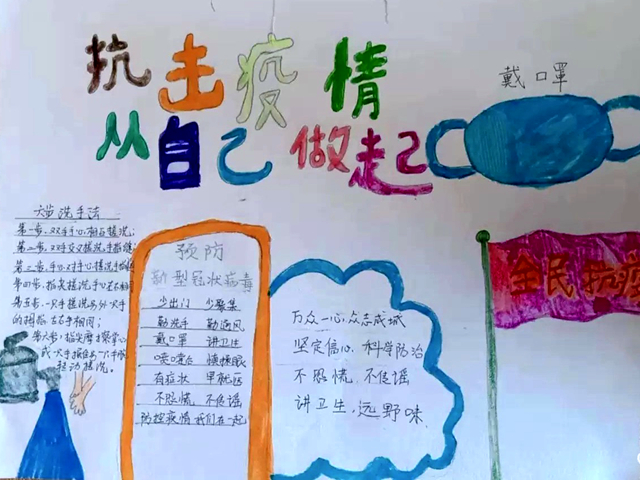 抗击疫情
从自己做起
戴口罩
六步洗手法
第一步，双手手心相互搓洗；
第二步，双手交叉搓洗手指缝；
第三步，手心对手心搓洗手
第四步，指尖搓洗手心左右相同
第五步，一只手握洗另外一只手
的拇指，左右手相同；
第六步，指尖摩擦掌心
或一只手握住另一只手
转动搓洗。
预防
新型冠状病毒
少出门 少聚集
勤洗手 勤通风
戴口罩 讲卫生
喷嚏后 慎揉眼
有症状 早就医
不恐慌 不传谣
防控疫情 我们在一起
万众一心，众志成城
坚定信心，科学防治
不恐慌，不传谣
讲卫生，远野味
全民抗疫